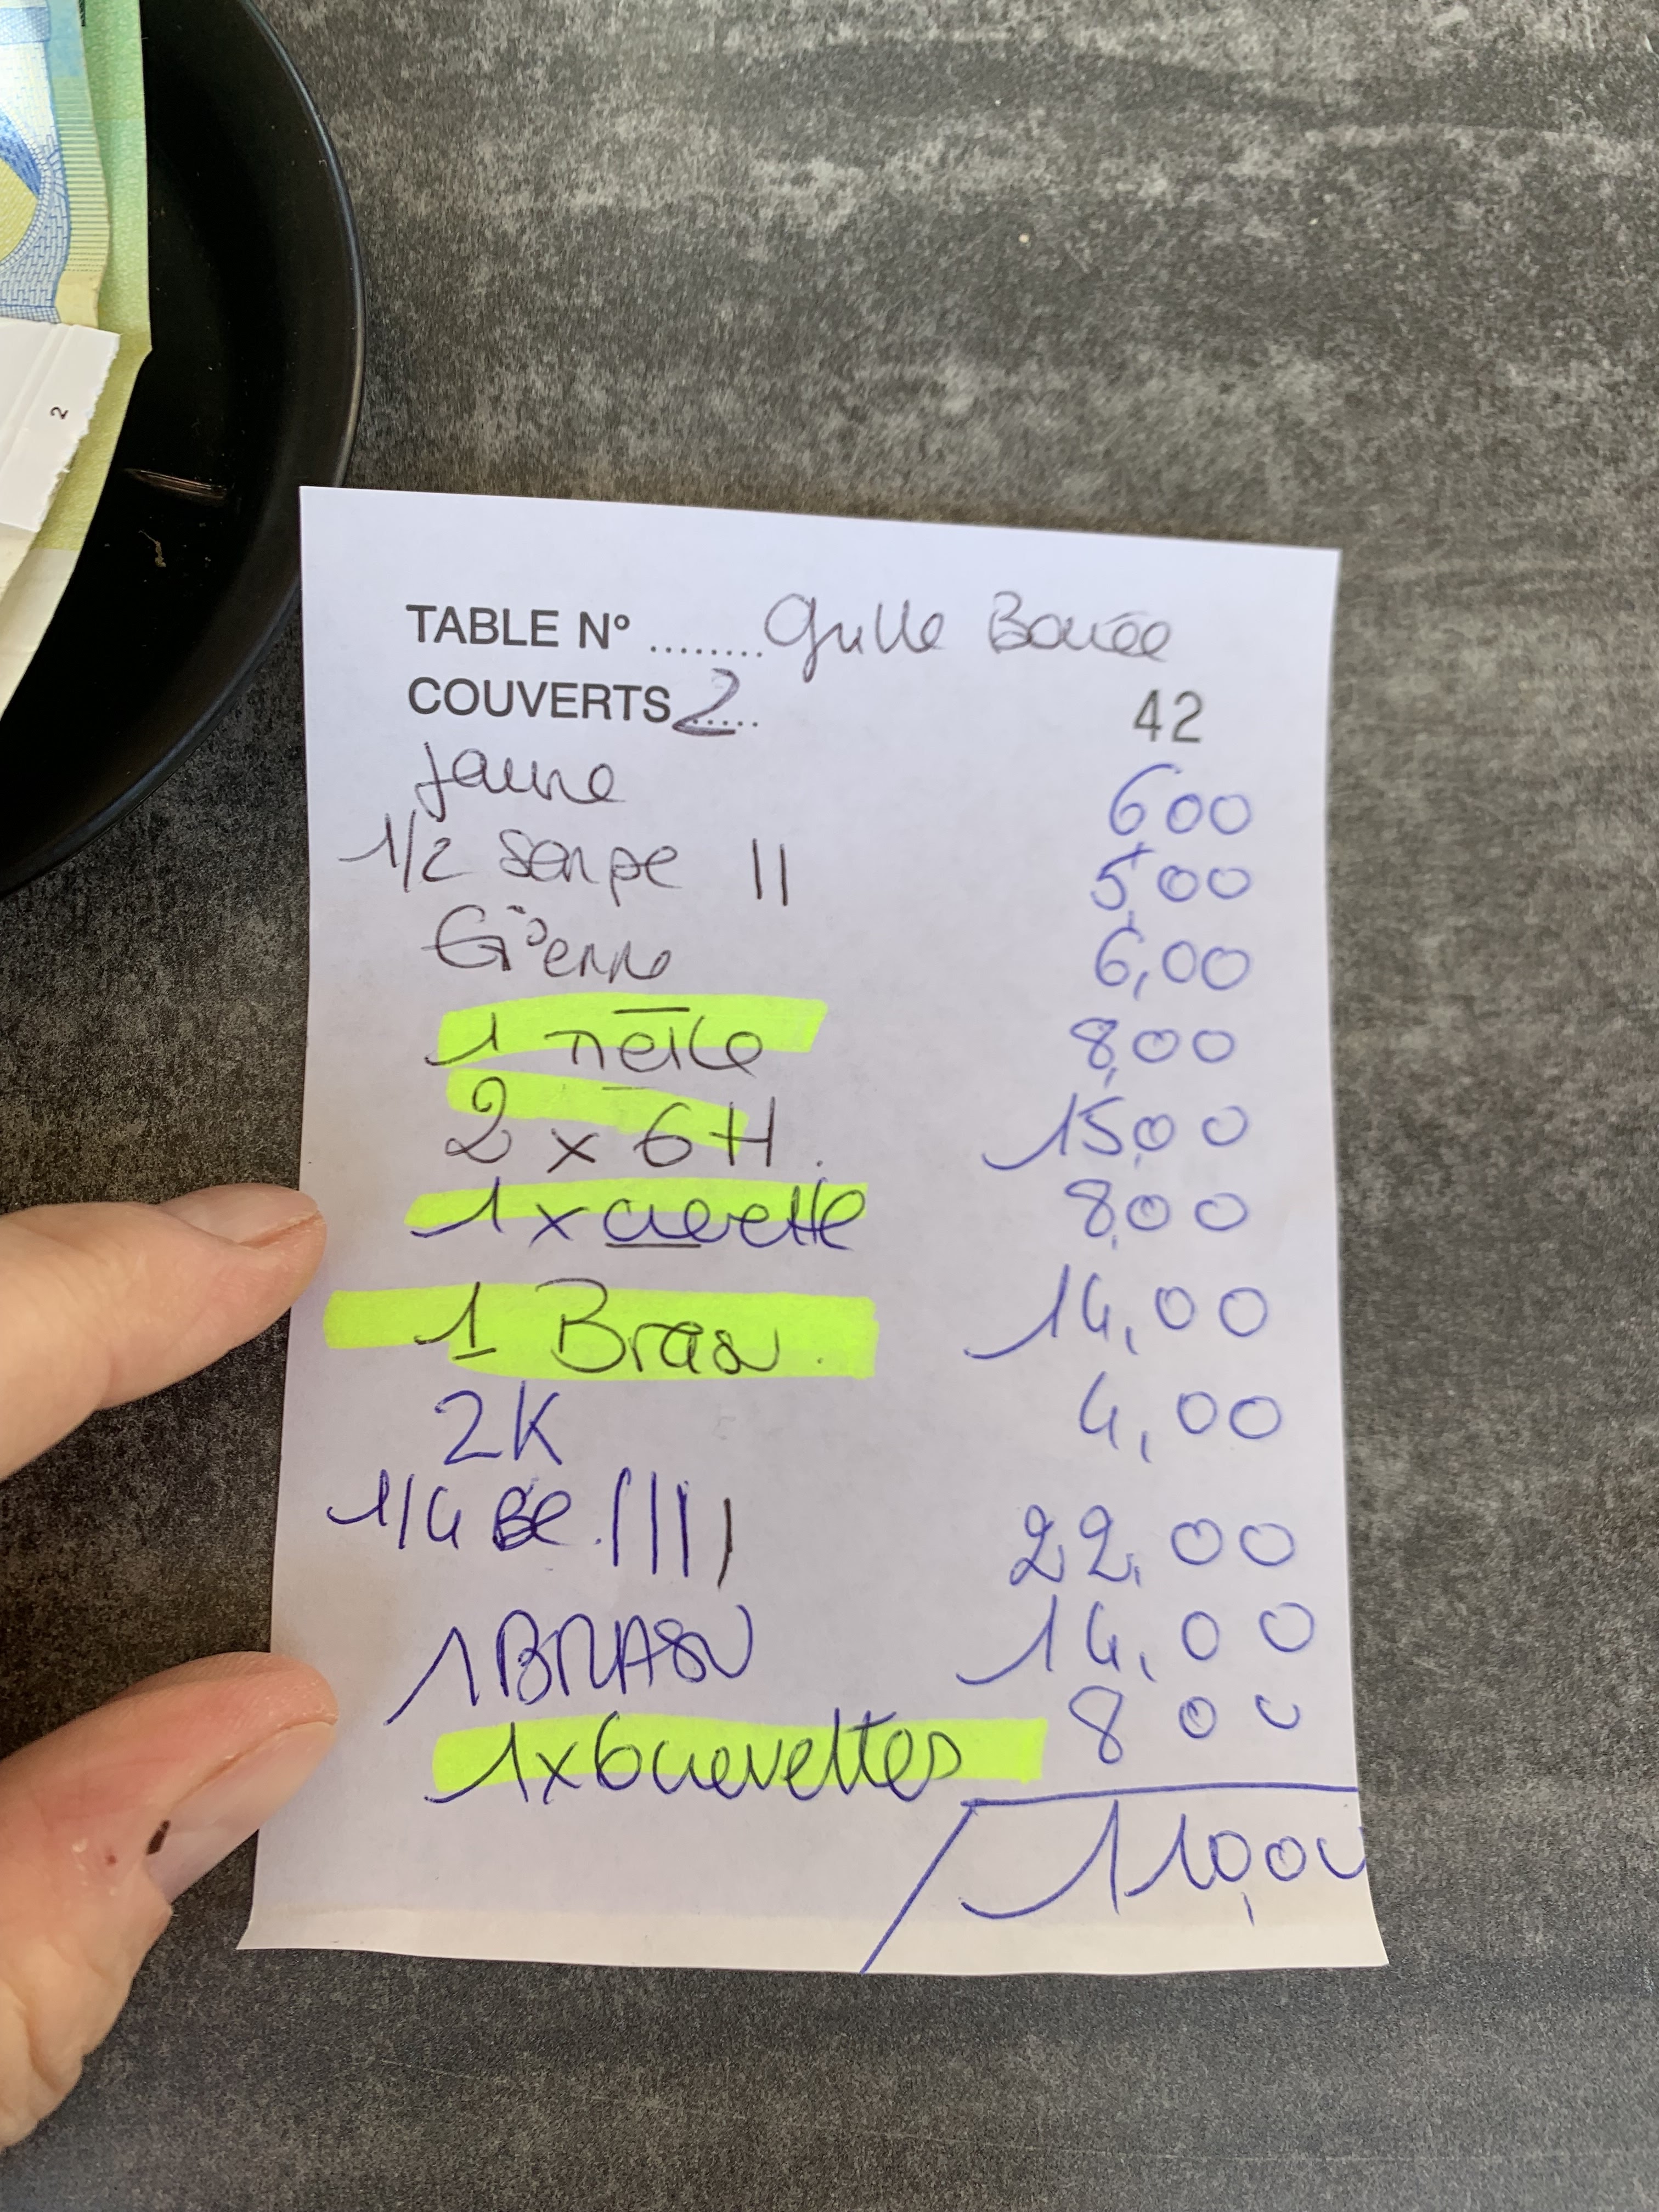 2
TABLE N° ........
COUVERTS 2
42
Jaune 6,00
1/2 II 5,00
6,00
1 8,00
2 x 6 H. 15,00
1 x crevette 8,00
1 Bras 14,00
2K 4,00
1/4 Be. IIII 22,00
1 BRAS 14,00
1x6 crevettes 8 00
110,00